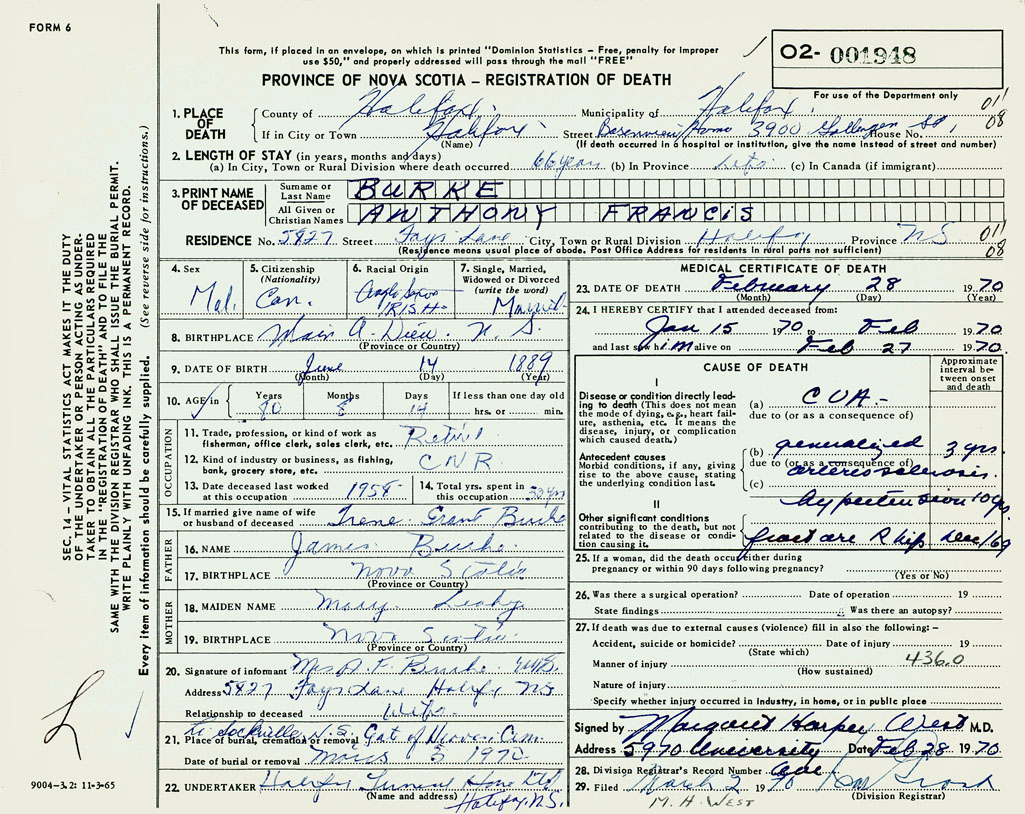 FORM 6
This form, if placed in an envelope, on which is printed "Dominion Statistics – Free, penalty for improper
use $50," and properly addressed will pass through the mail "FREE"
PROVINCE OF NOVA SCOTIA – REGISTRATION OF DEATH
02- 001948
For use of the Department only
011
08
1. PLACE OF DEATH
County of Halifax Municipality of Halifax
If in City or Town Halifax Street Home 3900 House No.
(Name) (If death occurred in a hospital or institution, give the name instead of street and number)
2. LENGTH OF STAY (in years, months and days)
(a) In City, Town or Rural Division where death occurred 66 years (b) In Province Life (c) In Canada (if immigrant)
3. PRINT NAME OF DECEASED
Surname or Last Name BURKE
All Given or Christian Names ANTHONY FRANCIS
RESIDENCE No. 5827 Street Fays Lane City, Town or Rural Division Halifax Province NS
011
08
(Residence means usual place of abode. Post Office Address for residents in rural parts not sufficient)
4. Sex Mal.
5. Citizenship (Nationality) Can.
6. Racial Origin IRISH
7. Single, Married, Widowed or Divorced (write the word) Married
8. BIRTHPLACE Main A. Dieu N. S.
(Province or Country)
9. DATE OF BIRTH June 14 1889
(Month) (Day) (Year)
10. AGE in Years 80 Months 8 Days 14 If less than one day old hrs. or min.
OCCUPATION
11. Trade, profession, or kind of work as fisherman, office clerk, sales clerk, etc. Retired
12. Kind of industry or business, as fishing, bank, grocery store, etc. CNR
13. Date deceased last worked at this occupation 1954
14. Total yrs. spent in this occupation yrs
15. If married give name of wife or husband of deceased Irene Grant Burke
FATHER
16. NAME James Burke
17. BIRTHPLACE Nova Scotia
(Province or Country)
MOTHER
18. MAIDEN NAME Mary Leahy
19. BIRTHPLACE Nova Scotia
(Province or Country)
20. Signature of informant Mrs A. F. Burke
Address 5827 Fays Lane Halifax NS
Relationship to deceased Wife
Sackville N.S.
21. Place of burial, cremation or removal Gat of Heaven Cem.
Date of burial or removal 3 1970
22. UNDERTAKER Halifax Funeral Home Ltd
(Name and address) Halifax, N.S.
MEDICAL CERTIFICATE OF DEATH
23. DATE OF DEATH February 28 1970
(Month) (Day) (Year)
24. I HEREBY CERTIFY that I attended deceased from:
Jan 15 1970 to Feb 1970
and last saw him alive on Feb 27 1970
CAUSE OF DEATH
Approximate interval between onset and death
I
Disease or condition directly leading to death (This does not mean the mode of dying, e.g., heart failure, asthenia, etc. It means the disease, injury, or complication which caused death.)
(a) CVA -
due to (or as a consequence of)
Antecedent causes
Morbid conditions, if any, giving rise to the above cause, stating the underlying condition last.
(b) generalized 3 yrs.
due to (or as a consequence of)
arteriosclerosis.
(c)
hypertension 10 yrs.
II
Other significant conditions contributing to the death, but not related to the disease or condition causing it.
fracture R hip Dec/69
25. If a woman, did the death occur either during pregnancy or within 90 days following pregnancy?
(Yes or No)
26. Was there a surgical operation? Date of operation 19
State findings Was there an autopsy?
27. If death was due to external causes (violence) fill in also the following: –
Accident, suicide or homicide? Date of injury 19
(State which)
436.0
Manner of injury
(How sustained)
Nature of injury
Specify whether injury occurred in industry, in home, or in public place
Signed by Margaret Harper West M.D.
Address 5970 University Date Feb 28 1970
28. Division Registrar's Record Number
29. Filed March 2 1970
(Division Registrar)
M. H. WEST
SEC. 14 – VITAL STATISTICS ACT MAKES IT THE DUTY
OF THE UNDERTAKER OR PERSON ACTING AS UNDER-
TAKER TO OBTAIN ALL THE PARTICULARS REQUIRED
IN THE "REGISTRATION OF DEATH" AND TO FILE THE
SAME WITH THE DIVISION REGISTRAR WHO SHALL ISSUE THE BURIAL PERMIT.
WRITE PLAINLY WITH UNFADING INK. THIS IS A PERMANENT RECORD.
Every item of information should be carefully supplied. (See reverse side for instructions.)
9004-3.2: 11-3-65